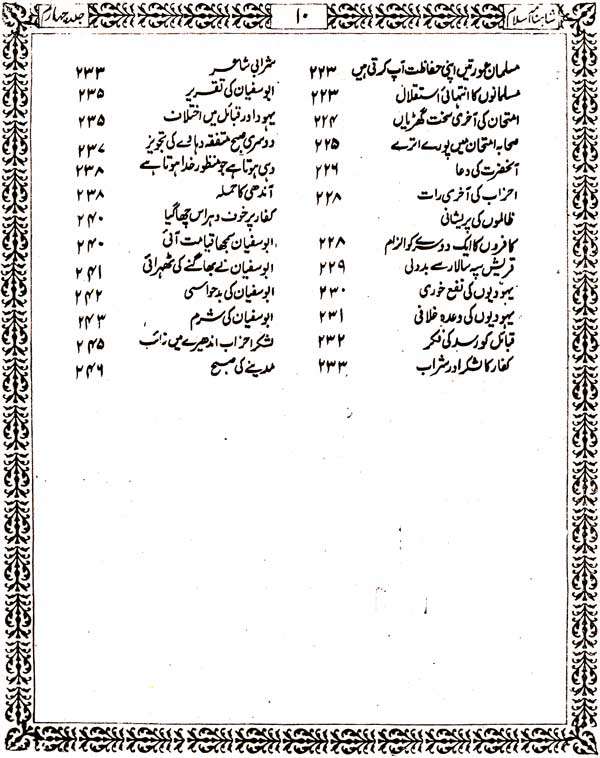 شاہنامہ اسلام
۱۰
جلد چہارم
مسلمان عورتیں اپنی حفاظت آپ کرتی ہیں ۲۲۳
مسلمانوں کا انتہائی استقلال ۲۲۳
امتحان کی آخری سخت گھڑیاں ۲۲۴
صحابہ امتحان میں پورے اترے ۲۲۵
آنحضرت کی دعا ۲۲۶
احزاب کی آخری رات ۲۲۸
ظالموں کی پریشانی
کافروں کا ایک دوسرے کو الزام ۲۲۸
قریش سپہ سالار سے بددلی ۲۲۹
یہودیوں کی نفع خوری ۲۳۰
یہودیوں کی وعدہ خلافی ۲۳۱
قبائل کو رسد کی فکر ۲۳۲
کفار کا لشکر اور شراب ۲۳۳
شرابی شاعر ۲۳۳
ابوسفیان کی تقریر ۲۳۵
یہود اور قبائل میں اختلاف ۲۳۵
دوسری صبح متفقہ دہاوے کی تجویز ۲۳۷
وہی ہوتا ہے جو منظور خدا ہوتا ہے ۲۳۸
آندھی کا حملہ ۲۳۸
کفار پر خوف و ہراس چھا گیا ۲۴۰
ابوسفیان سمجھا قیامت آئی ۲۴۰
ابوسفیان نے بھاگنے کی ٹھہرائی ۲۴۱
ابوسفیان کی بدحواسی ۲۴۲
ابوسفیان کی شرم ۲۴۳
لشکر احزاب اندھیرے میں غائب ۲۴۵
مدینے کی صبح ۲۴۶